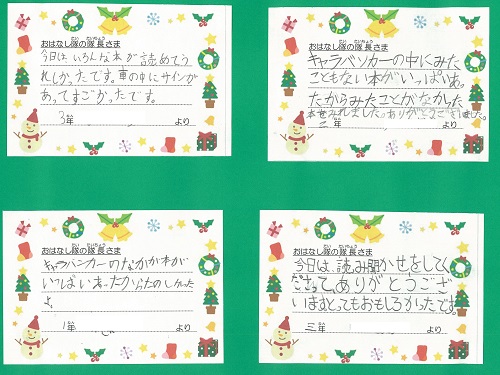 おはなし隊の隊長さま
今日は、いろんな本が読めてう
れしかったです。車の中にサインが
あってすごかったです。
3年 より
おはなし隊の隊長さま
キャラバンカーの中にみた
こともない本がいっぱいあ
ったからみたことがなかった
本をみれました。ありがとうございました。
三年 より
おはなし隊の隊長さま
キャラバンカーのなかが本が
いっぱいあったからたのしかった
よ
1年 より
おはなし隊の隊長さま
今日は、読み聞かせをしてく
ださって、ありがとうござ
いますとてもおもしろかったです。
三年 より